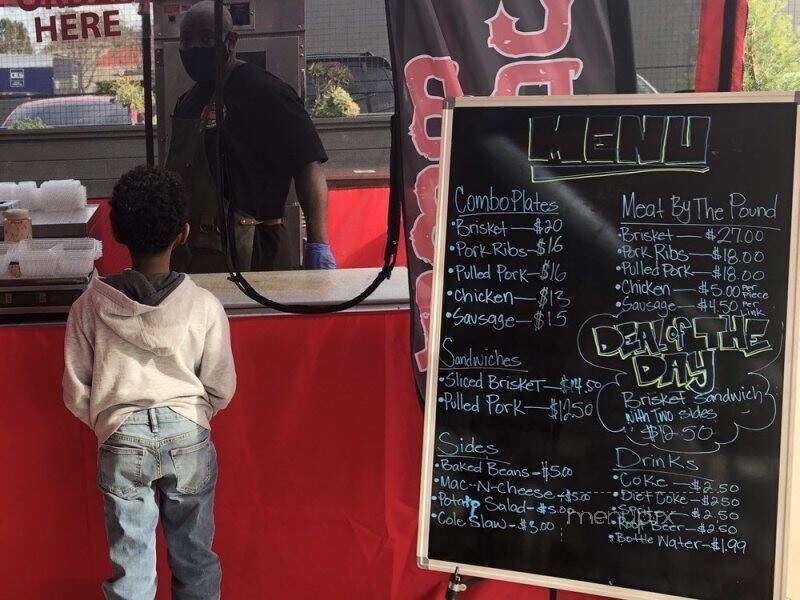 ORDER
HERE
MENU
Combo Plates
• Brisket — $20
• Pork Ribs - $16
• Pulled Pork - $16
• Chicken — $13
• Sausage — $15
Sandwiches
• Sliced Brisket — $14.50
• Pulled Pork — $12.50
Sides
• Baked Beans - $5.00
• Mac-N-Cheese - $5.00
• Potato Salad - $5.00
• Cole Slaw - $5.00
Meat By The Pound
• Brisket — $27.00
• Pork Ribs — $18.00
• Pulled Pork — $18.00
• Chicken — $5.00 Per Piece
• Sausage — $4.50 Per Link
DEAL OF THE
DAY
Brisket Sandwich
with two sides
$12.50
Drinks
• Coke — $2.50
• Diet Coke - $2.50
$2.50
Beer - $2.50
• Bottle Water - $1.99